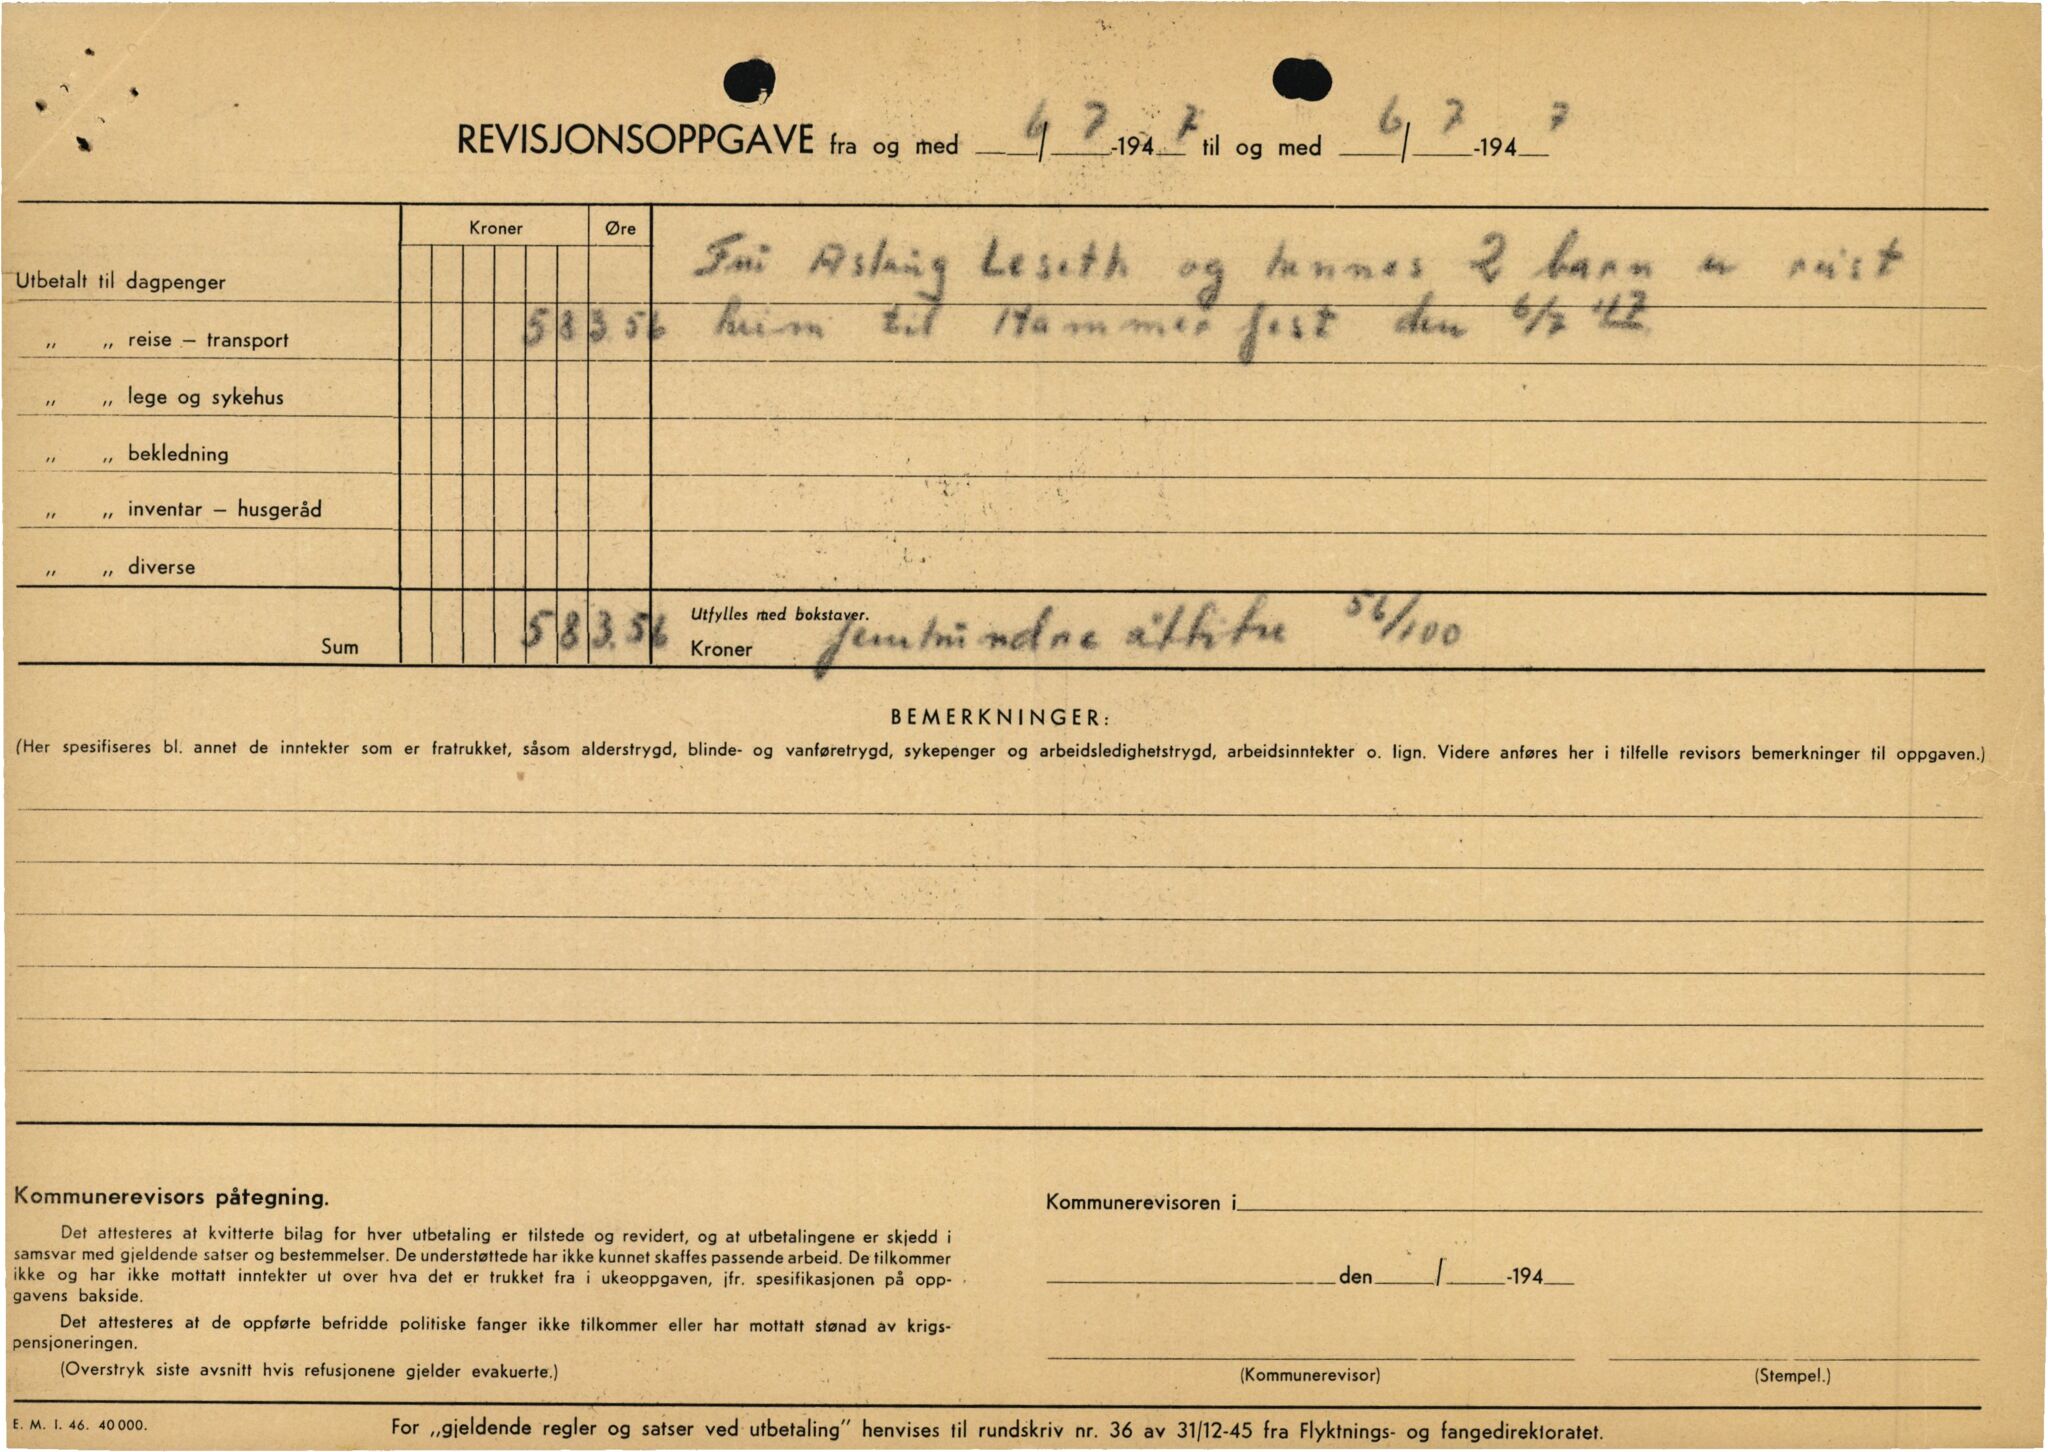 REVISJONSOPPGAVE fra og med 6/7-1947 til og med 6/7-1947
Kroner Øre
Utbetalt til dagpenger
Fru Aslaug Leseth og hennes 2 barn er reist
„ „ reise – transport 583.56 heim til Hammerfest den 6/7 47
„ „ lege og sykehus
„ „ bekledning
„ „ inventar – husgeråd
„ „ diverse
Utfylles med bokstaver.
Sum 583.56 Kroner femhundre åttitre 56/100
BEMERKNINGER:
(Her spesifiseres bl. annet de inntekter som er fratrukket, såsom alderstrygd, blinde- og vanføretrygd, sykepenger og arbeidsledighetstrygd, arbeidsinntekter o. lign. Videre anføres her i tilfelle revisors bemerkninger til oppgaven.)
Kommunerevisors påtegning.
Det attesteres at kvitterte bilag for hver utbetaling er tilstede og revidert, og at utbetalingene er skjedd i
samsvar med gjeldende satser og bestemmelser. De understøttede har ikke kunnet skaffes passende arbeid. De tilkommer
ikke og har ikke mottatt inntekter ut over hva det er trukket fra i ukeoppgaven, jfr. spesifikasjonen på opp-
gavens bakside.
Det attesteres at de oppførte befridde politiske fanger ikke tilkommer eller har mottatt stønad av krigs-
pensjoneringen.
(Overstryk siste avsnitt hvis refusjonene gjelder evakuerte.)
Kommunerevisoren i
den / -194
(Kommunerevisor) (Stempel.)
E. M. I. 46. 40 000.
For „gjeldende regler og satser ved utbetaling" henvises til rundskriv nr. 36 av 31/12-45 fra Flyktnings- og fangedirektoratet.